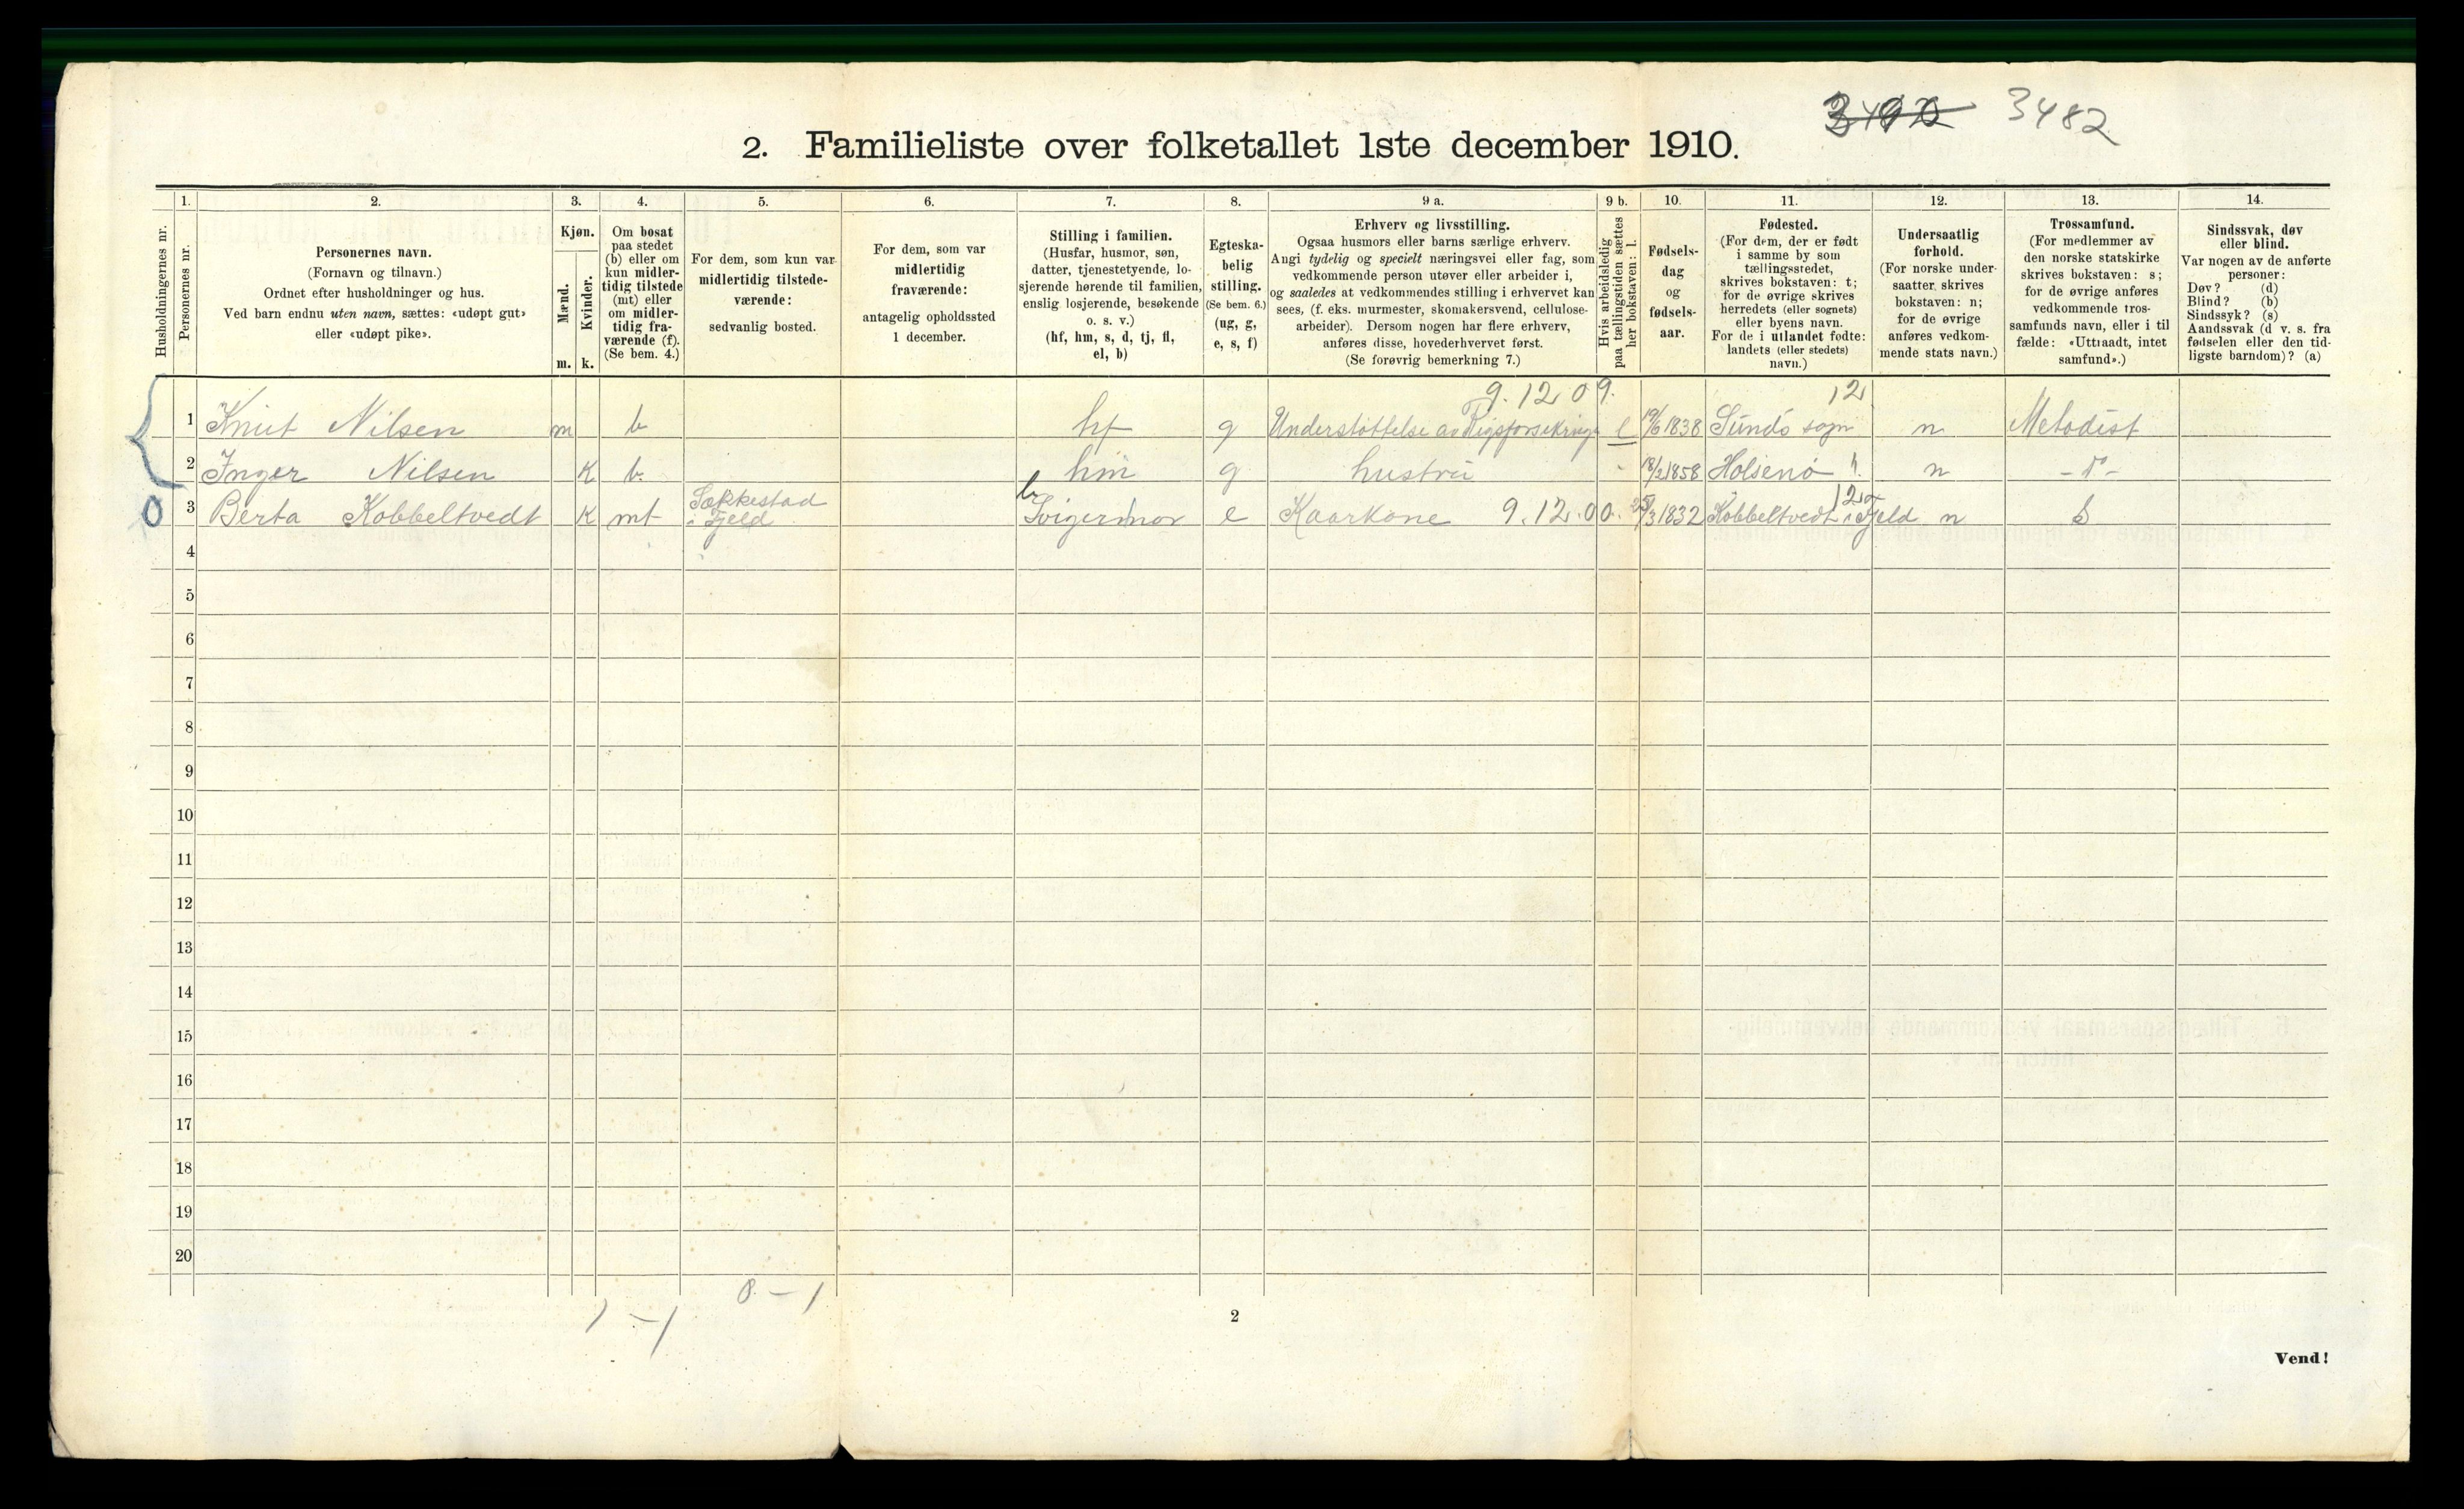 3482
2. Familieliste over folketallet 1ste december 1910.
Husholdningernes nr.
1. Personernes nr.
2. Personernes navn.
(Fornavn og tilnavn.)
Ordnet efter husholdninger og hus.
Ved barn endnu uten navn, sættes: «udøpt gut»
eller «udøpt pike».
3. Kjøn.
Mænd. m.
Kvinder. k.
4. Om bosat
paa stedet
(b) eller om
kun midler-
tidig tilstede
(mt) eller
om midler-
tidig fra-
værende (f).
(Se bem. 4.)
5. For dem, som kun var
midlertidig tilstede-
værende:
sedvanlig bosted.
6. For dem, som var
midlertidig
fraværende:
antagelig opholdssted
1 december.
7. Stilling i familien.
(Husfar, husmor, søn,
datter, tjenestetyende, lo-
sjerende hørende til familien,
enslig losjerende, besøkende
o. s. v.)
(hf, hm, s, d, tj, fl,
el, b)
8. Egteska-
belig
stilling.
(Se bem. 6.)
(ug, g,
e, s, f)
9 a. Erhverv og livsstilling.
Ogsaa husmors eller barns særlige erhverv.
Angi tydelig og specielt næringsvei eller fag, som
vedkommende person utøver eller arbeider i,
og saaledes at vedkommendes stilling i erhvervet kan
sees, (f. eks. murmester, skomakersvend, cellulose-
arbeider). Dersom nogen har flere erhverv,
anføres disse, hovederhvervet først.
(Se forøvrig bemerkning 7.)
9 b. Hvis arbeidsledig
paa tællingstiden sættes
her bokstaven: l.
10. Fødsels-
dag
og
fødsels-
aar.
11. Fødested.
(For dem, der er født
i samme by som
tællingsstedet,
skrives bokstaven: t;
for de øvrige skrives
herredets (eller sognets)
eller byens navn.
For de i utlandet fødte:
landets (eller stedets)
navn.)
12. Undersaatlig
forhold.
(For norske under-
saatter skrives
bokstaven: n;
for de øvrige
anføres vedkom-
mende stats navn.)
13. Trossamfund.
(For medlemmer av
den norske statskirke
skrives bokstaven: s;
for de øvrige anføres
vedkommende tros-
samfunds navn, eller i til
fælde: «Uttraadt, intet
samfund».)
14. Sindssvak, døv
eller blind.
Var nogen av de anførte
personer:
Døv? (d)
Blind? (b)
Sindssyk? (s)
Aandssvak (d v. s. fra
fødselen eller den tid-
ligste barndom)? (a)
9.12 09. 12
1 Knut Nilsen m b hf g Understøttelse av Rigsforsikringe l 19/6 1838 Sundö sogn n Metodist
2 Inger Nilsen K b. hm g hustru - 18/2 1858 Holsenö h. n -d°-
0 3 Berta Kobbeltvedt K mt Sækkestad i Fjeld b Svigermor e Kaarkone 9.12.00. 25/3 1832 Kobbeltvedt i Fjeld 12 n S
4
5
6
7
8
9
10
11
12
13
14
15
16
17
18
19
20
0 - 1
1 - 1
2
Vend!